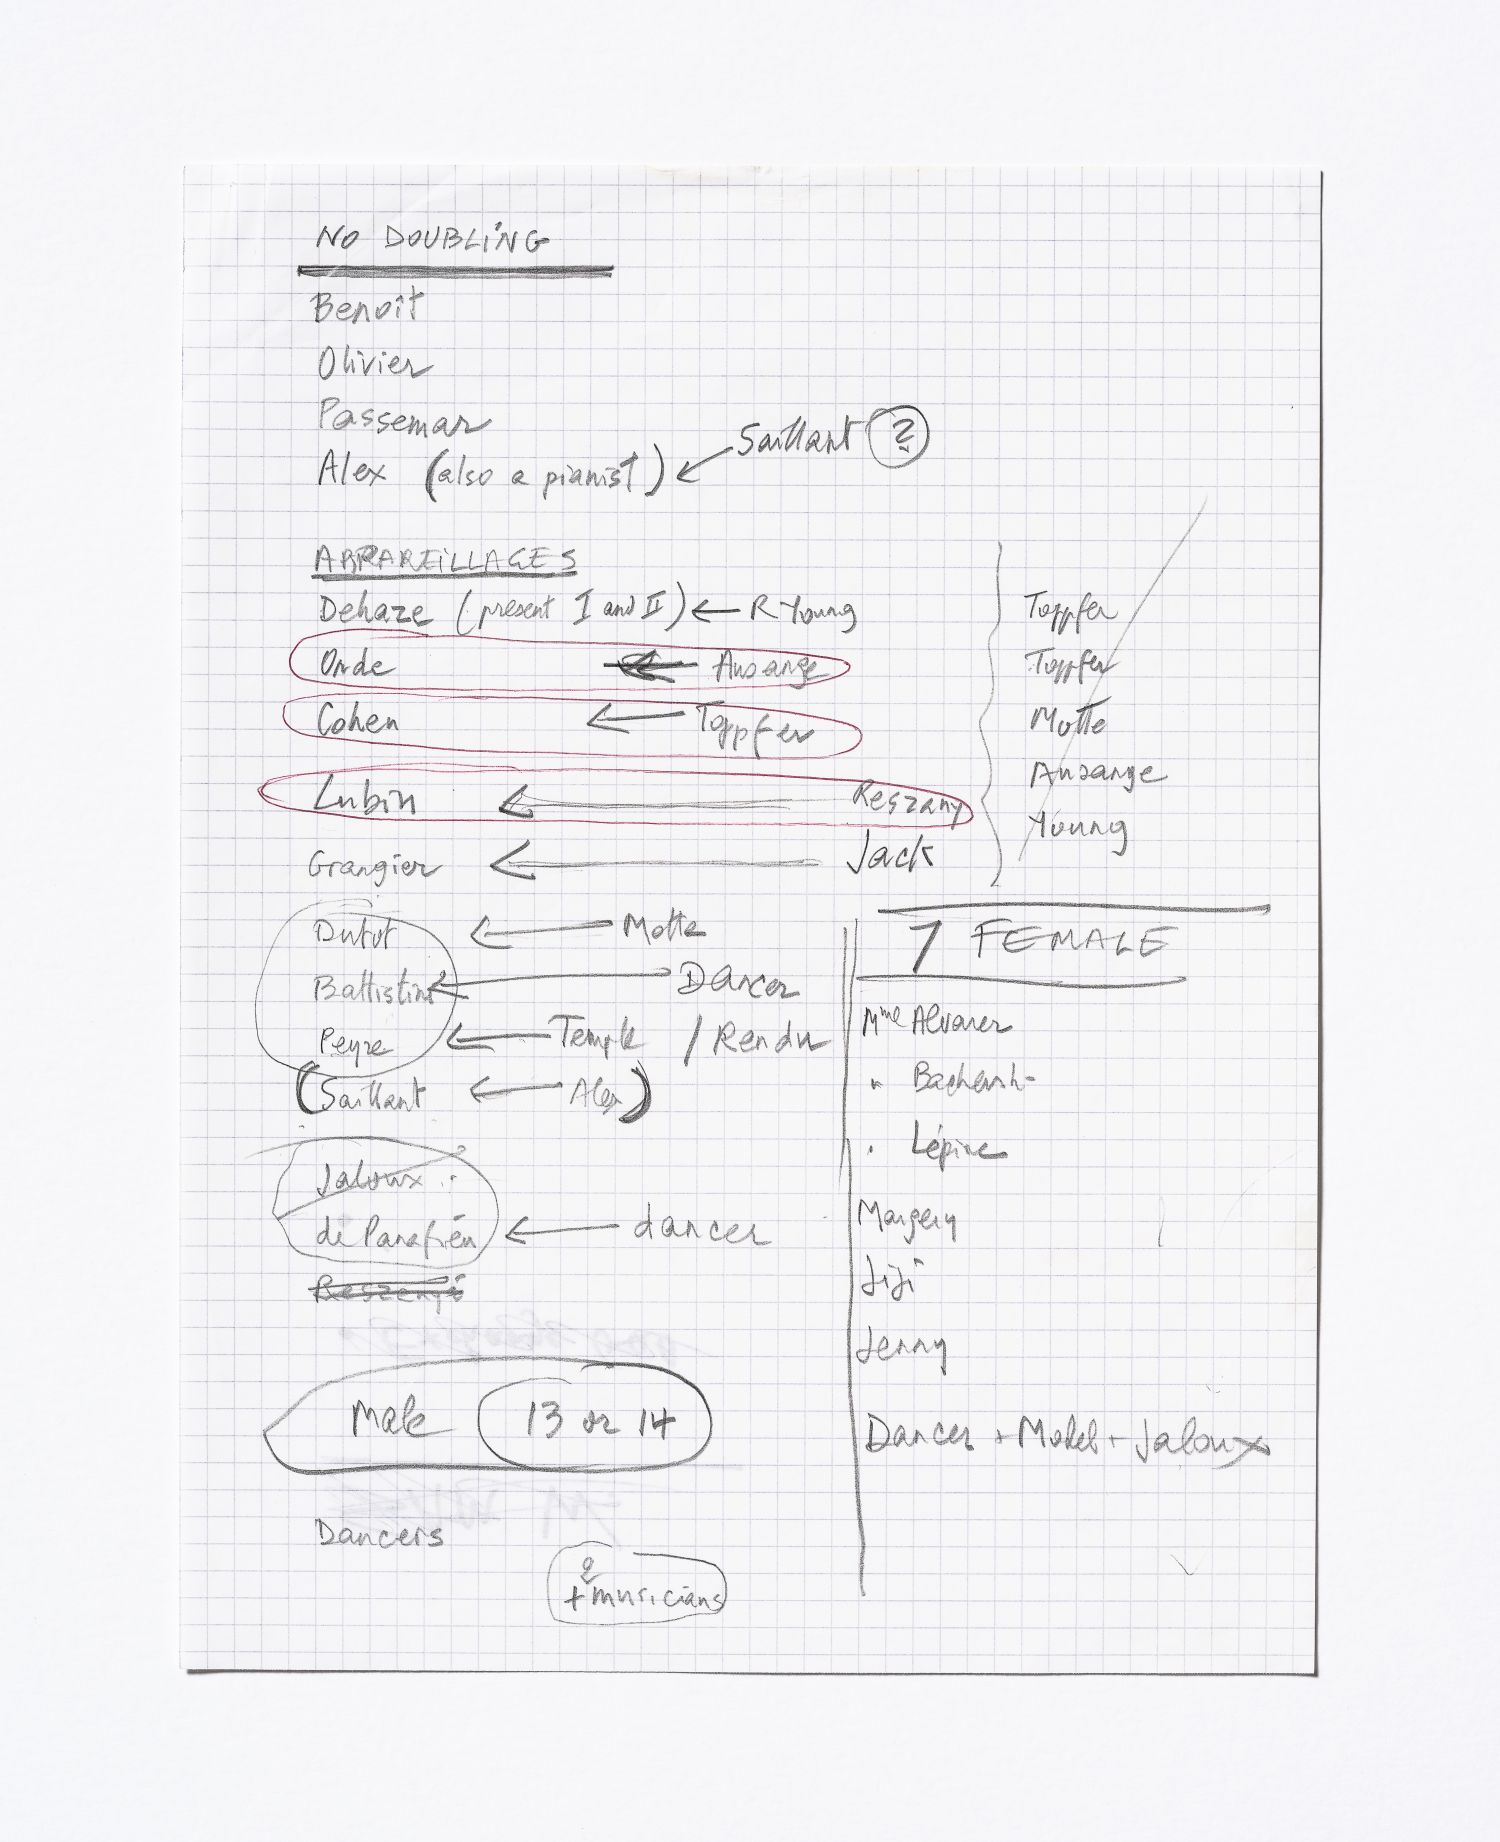 NO DOUBLING
Benoît
Olivier
Passemar
Alex (also a pianist) ← Saillant ?
APPAREILLAGES
Dehaze (present I and II) ← R Young
Onde ← Ausange
Cohen ← Topfer
Lubin ← Reszany
Grangier ← Jack
Dutot ← Motte
Battistini ← Dancer
Peyre ← Temple / Rendu
(Saillant ← Alex)
Jaloux
di Panafieu ← dancer
Male 13 or 14
Dancers
2
+ musicians
Toppfer
Toppfer
Motte
Ausange
Young
7 FEMALE
Mme Alvarez
" Lépine
Margery
Jiji
Jenny
Dancer + Model + Jaloux